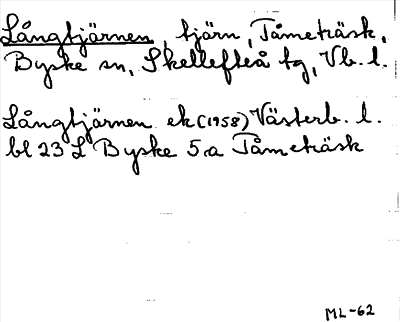 Långtjärnen, tjärn, Tåmeträsk,
Byske sn, Skellefteå tg, Vb. l.
Långtjärnen ek (1958) Västerb. l.
bl 23 L Byske 5a Tåmeträsk
ML-62